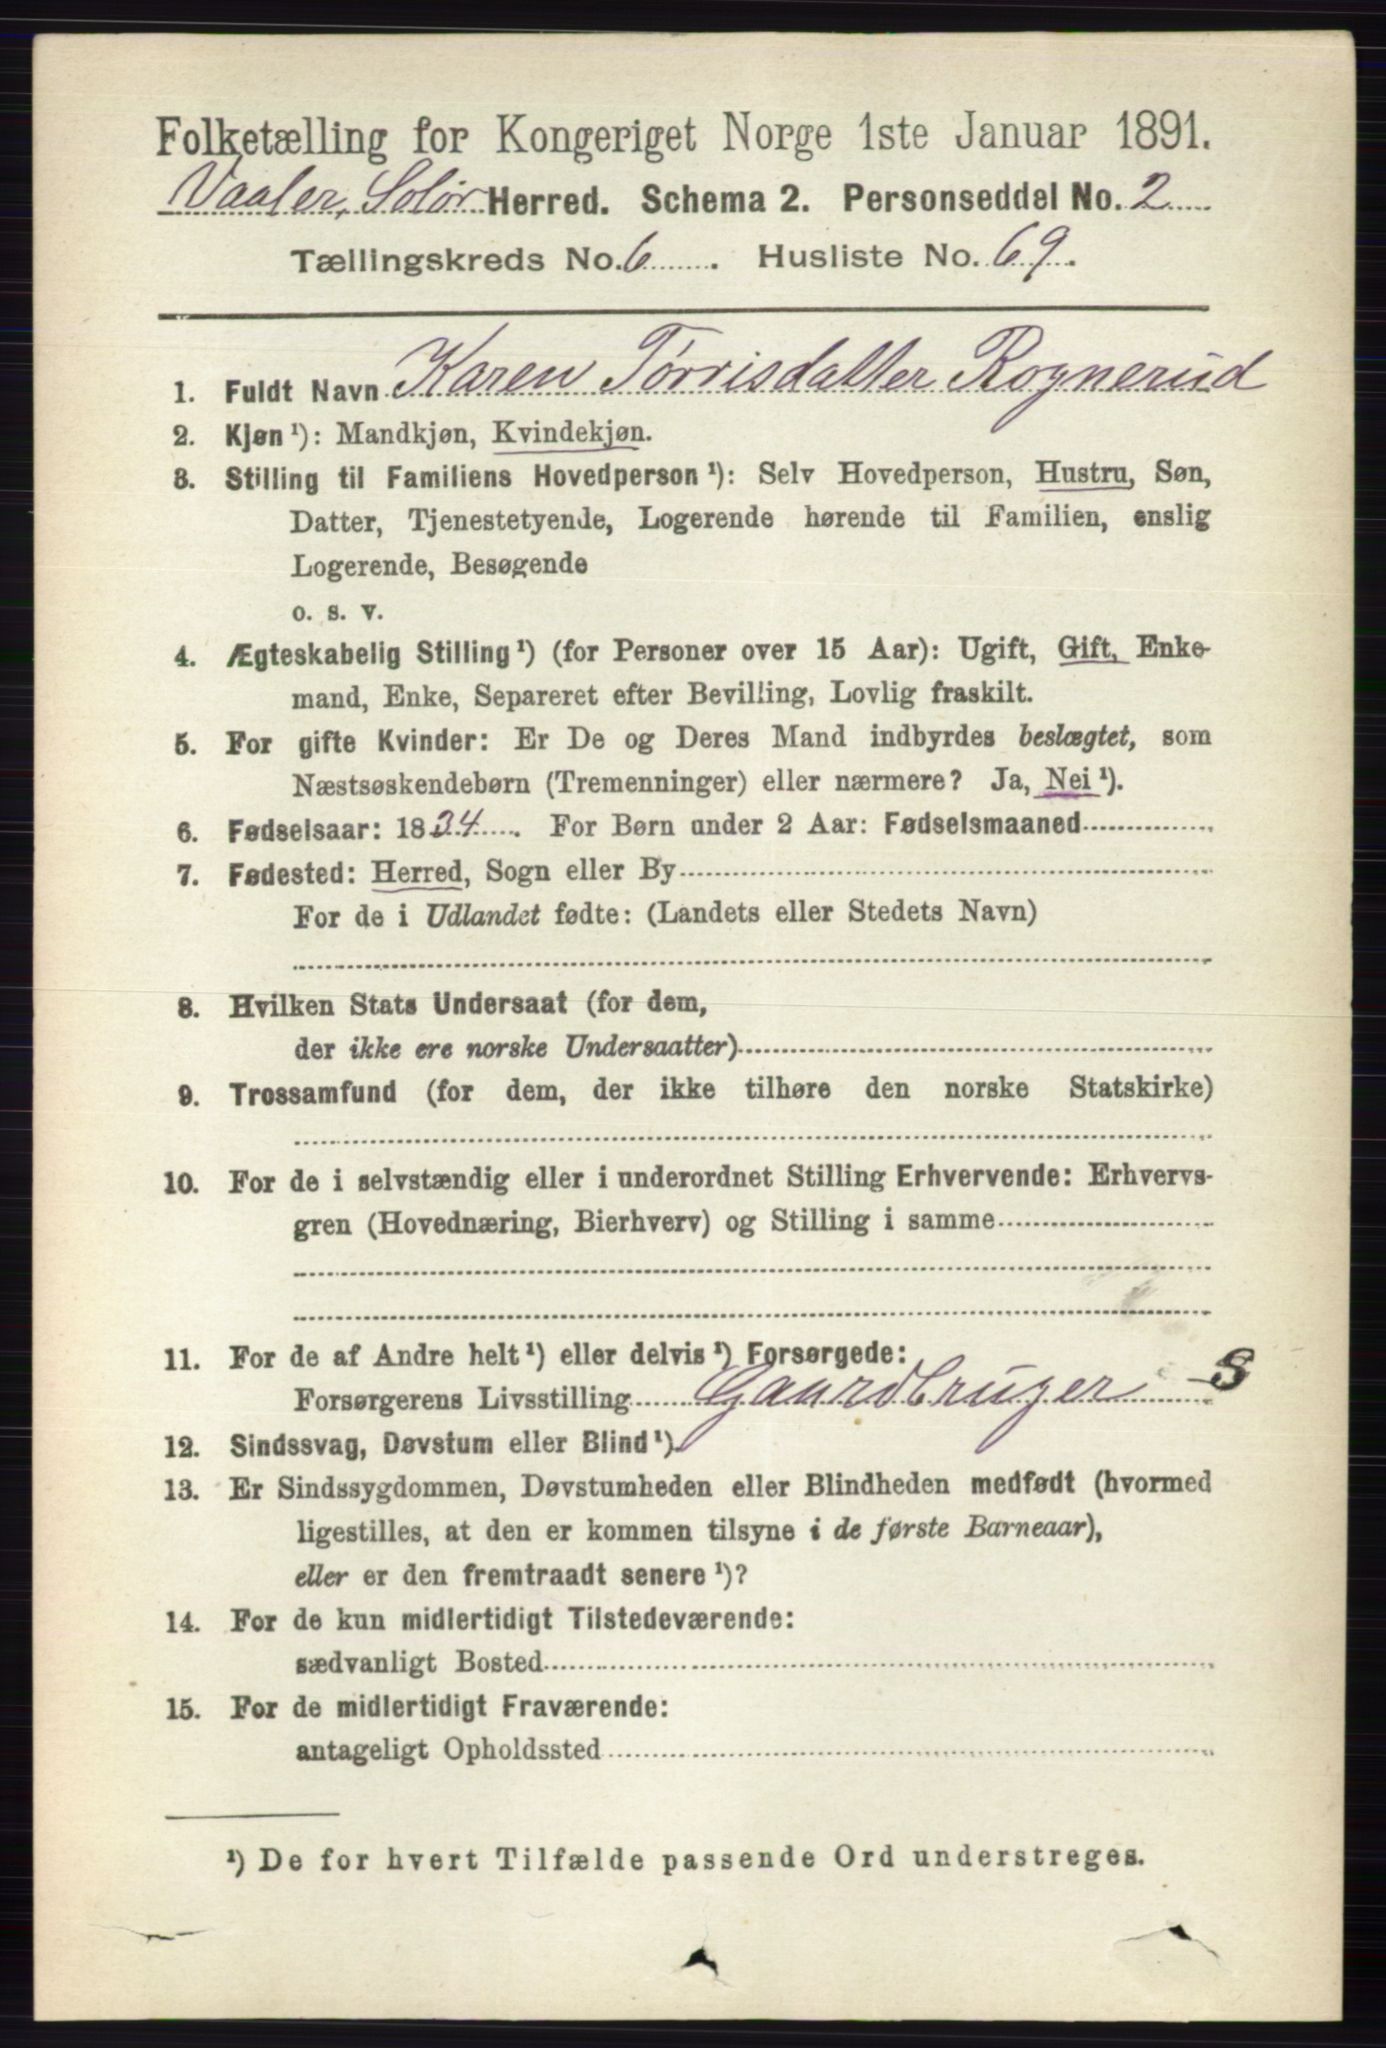 Folketælling for Kongeriget Norge 1ste Januar 1891.
Vaaler, Solør Herred. Schema 2. Personseddel No. 2
Tællingskreds No. 6. Husliste No. 69.
1. Fuldt Navn Karen Tørrisdatter Rognerud
2. Kjøn ¹): Mandkjøn, Kvindekjøn.
3. Stilling til Familiens Hovedperson ¹): Selv Hovedperson, Hustru, Søn,
Datter, Tjenestetyende, Logerende hørende til Familien, enslig
Logerende, Besøgende
o. s. v.
4. Ægteskabelig Stilling ¹) (for Personer over 15 Aar): Ugift, Gift, Enke-
mand, Enke, Separeret efter Bevilling, Lovlig fraskilt.
5. For gifte Kvinder: Er De og Deres Mand indbyrdes beslægtet, som
Næstsøskendebørn (Tremenninger) eller nærmere? Ja, Nei ¹).
6. Fødselsaar: 1834. For Børn under 2 Aar: Fødselsmaaned
7. Fødested: Herred, Sogn eller By
For de i Udlandet fødte: (Landets eller Stedets Navn)
8. Hvilken Stats Undersaat (for dem,
der ikke ere norske Undersaatter)
9. Trossamfund (for dem, der ikke tilhøre den norske Statskirke)
10. For de i selvstændig eller i underordnet Stilling Erhvervende: Erhvervs-
gren (Hovednæring, Bierhverv) og Stilling i samme
11. For de af Andre helt ¹) eller delvis ¹) Forsørgede:
Forsørgerens Livsstilling Gaardbruger S
12. Sindssvag, Døvstum eller Blind ¹).
13. Er Sindssygdommen, Døvstumheden eller Blindheden medfødt (hvormed
ligestilles, at den er kommen tilsyne i de første Barneaar),
eller er den fremtraadt senere ¹)?
14. For de kun midlertidigt Tilstedeværende:
sædvanligt Bosted
15. For de midlertidigt Fraværende:
antageligt Opholdssted
¹) De for hvert Tilfælde passende Ord understreges.